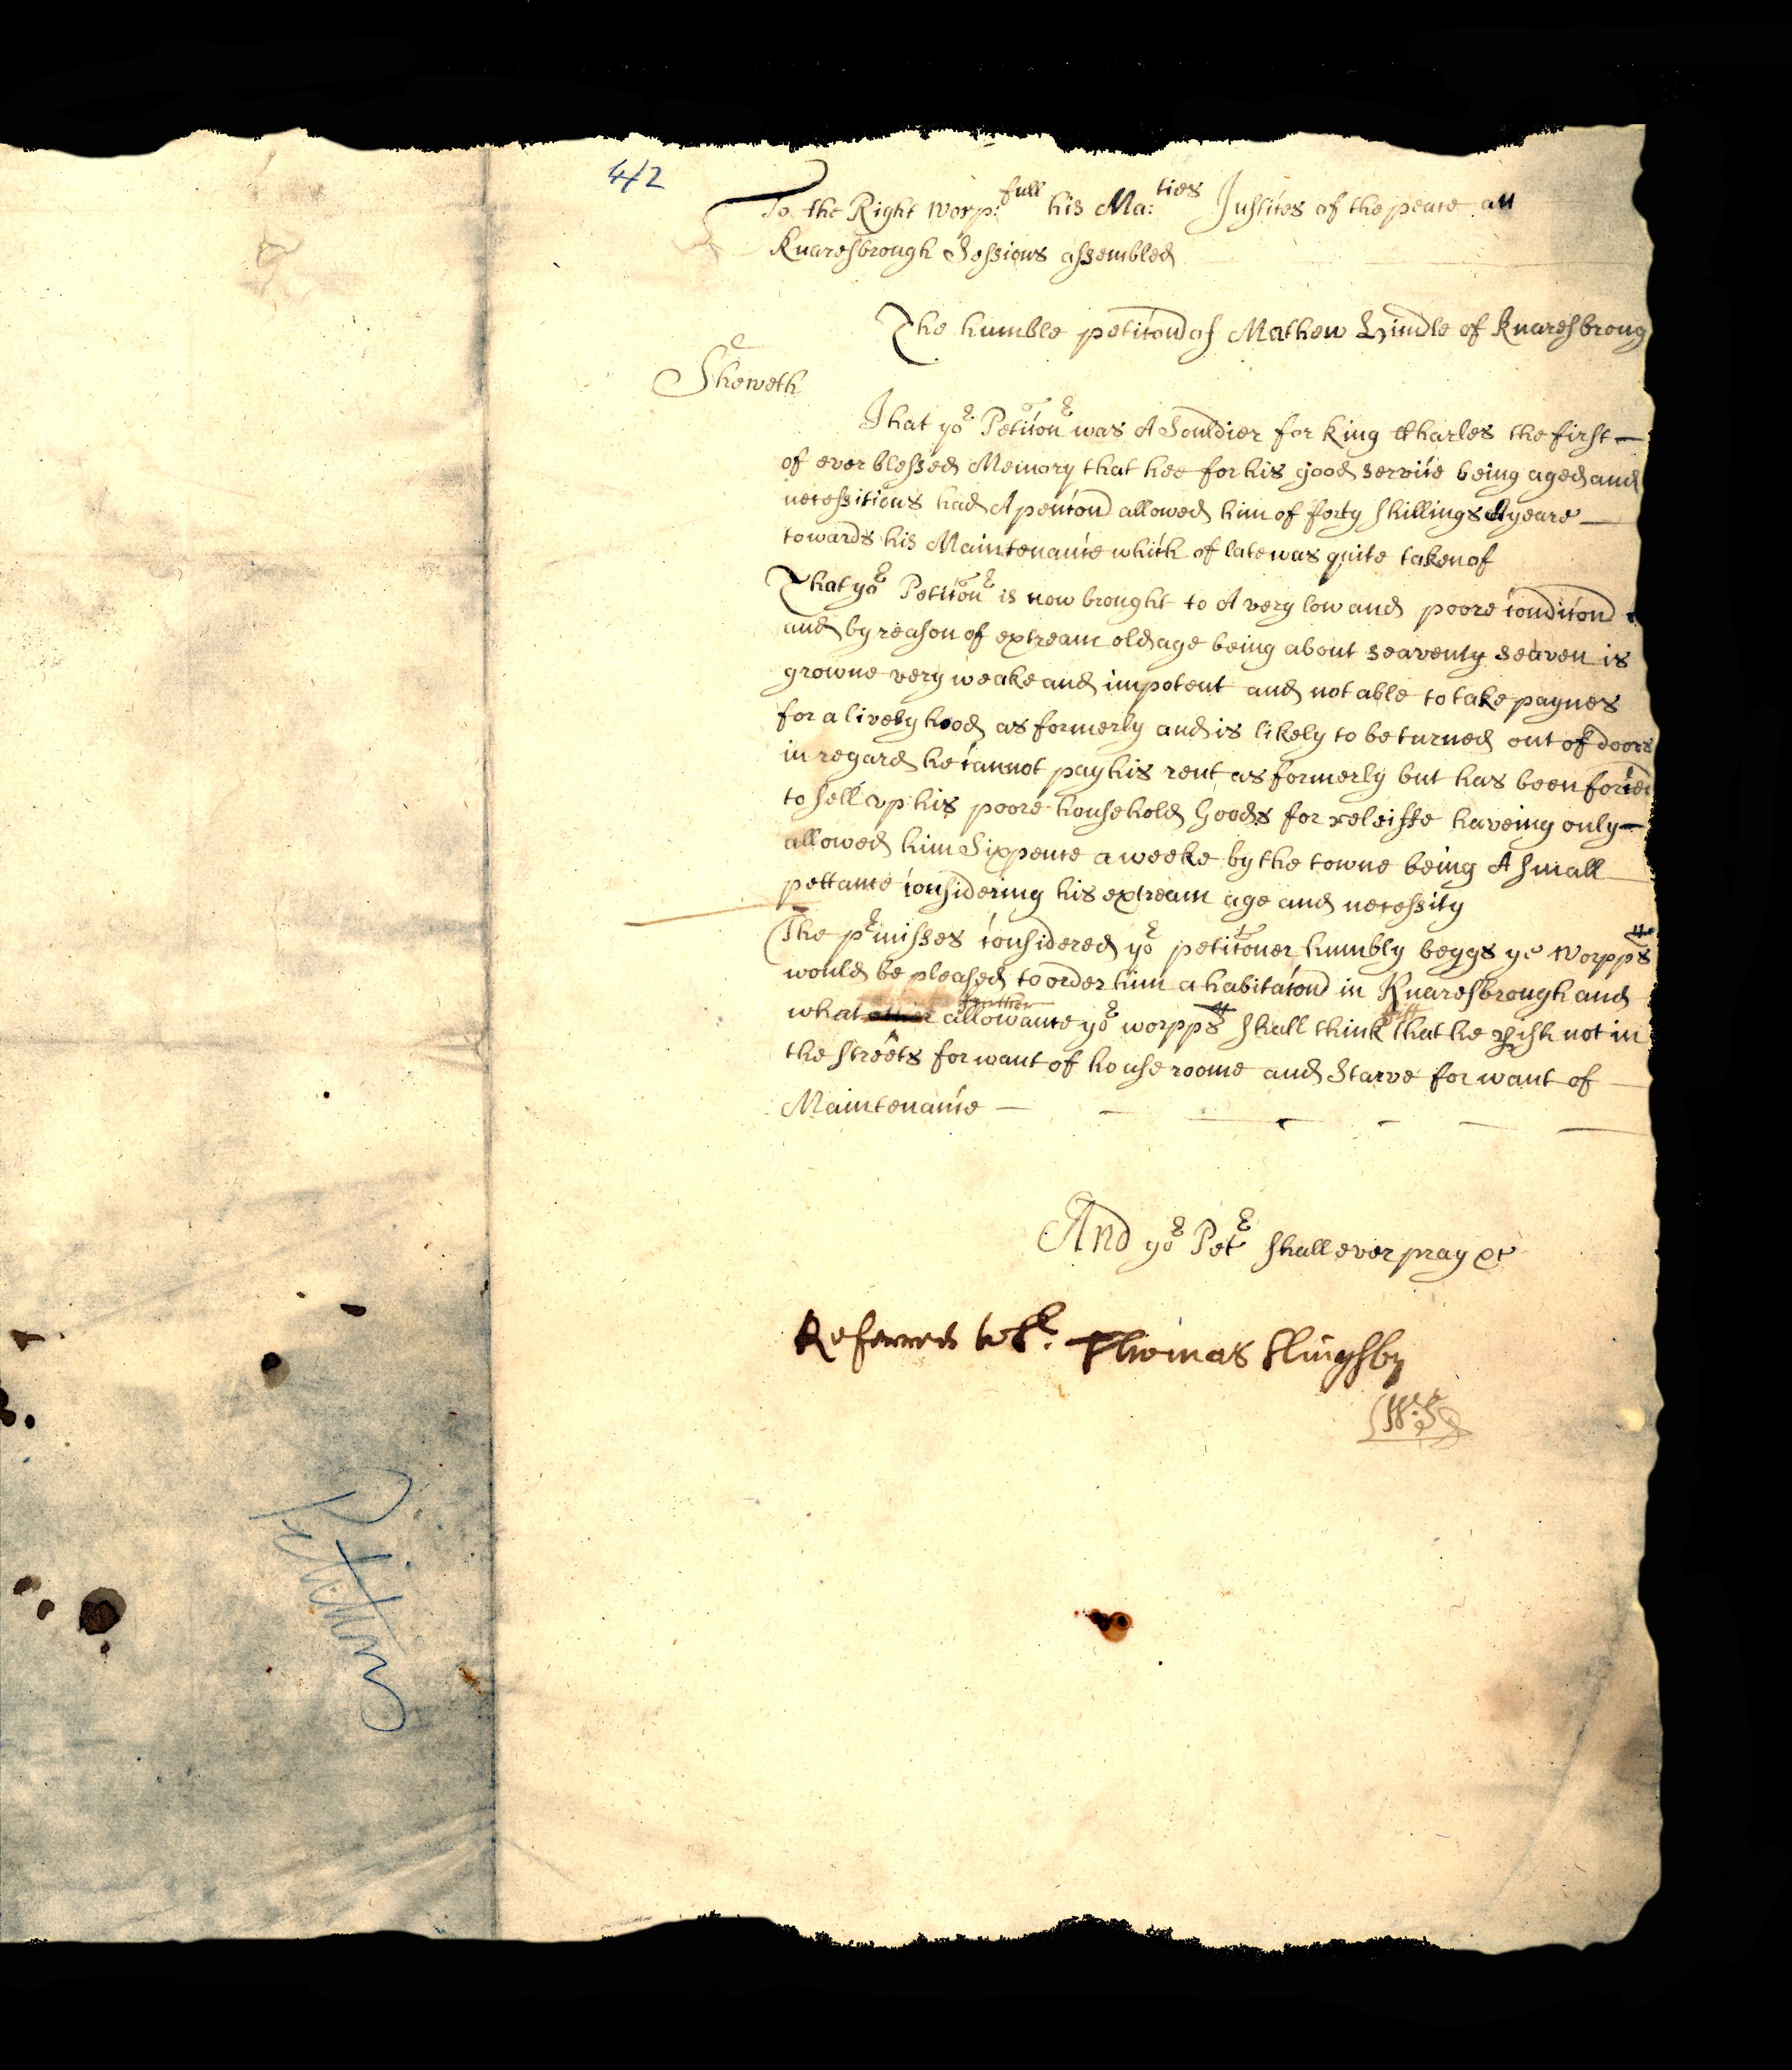 42
To the Right worp:full his Ma:ties Justices of the peace att
Knaresbrough Sessions assembled
The humble peticon of Mathew Hindle of Knaresbroug
Sheweth
That yor Peticonr was A Souldier for King Charles the first
of ever blessed Memory that hee for his good service being aged and
necessitious had A pencon allowed him of forty shillings A yeare
towards his Maintenance which of late was quite taken of
That yor Peticonr is now brought to A very low and poore condicon
and by reason of extream old age being about seaventy seaven is
growne very weake and impotent and not able to take paynes
for a livelyhood as formerly and is likely to be turned out of doors
in regard he cannot pay his rent as formerly but has been forced
to sell vp his poore household Goods for releiffe haveing only
allowed him Sixpence a weeke by the towne being A small
pettance considering his extream age and necessity
The prmisses considered yor peticoner humbly beggs yor worpps
would be pleased to order him a habitacon in Knaresbrough and
what other further allowance yor worpps shall think fitt that he perish not in
the streets for want of house roome and Starve for want of
Maintenance
And yor Petr shall ever pray &c
Referred to Sr. Thomas Slingsby
Petitions